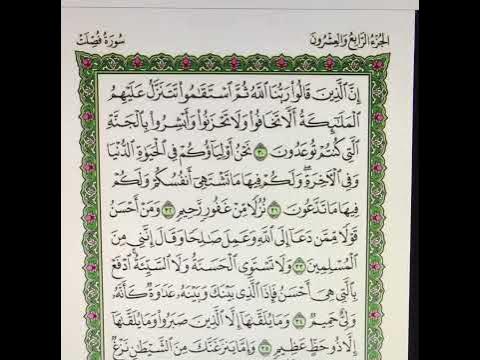 الجزء الرابع والعشرون
سورة فصلت
إِنَّ ٱلَّذِينَ قَالُوا۟ رَبُّنَا ٱللَّهُ ثُمَّ ٱسْتَقَـٰمُوا۟ تَتَنَزَّلُ عَلَيْهِمُ
ٱلْمَلَـٰٓئِكَةُ أَلَّا تَخَافُوا۟ وَلَا تَحْزَنُوا۟ وَأَبْشِرُوا۟ بِٱلْجَنَّةِ
ٱلَّتِى كُنتُمْ تُوعَدُونَ ٣٠ نَحْنُ أَوْلِيَآؤُكُمْ فِى ٱلْحَيَوٰةِ ٱلدُّنْيَا
وَفِى ٱلْـَٔاخِرَةِ ۖ وَلَكُمْ فِيهَا مَا تَشْتَهِىٓ أَنفُسُكُمْ وَلَكُمْ
فِيهَا مَا تَدَّعُونَ ٣١ نُزُلًا مِّنْ غَفُورٍ رَّحِيمٍ ٣٢ وَمَنْ أَحْسَنُ
قَوْلًا مِّمَّن دَعَآ إِلَى ٱللَّهِ وَعَمِلَ صَـٰلِحًا وَقَالَ إِنَّنِى مِنَ
ٱلْمُسْلِمِينَ ٣٣ وَلَا تَسْتَوِى ٱلْحَسَنَةُ وَلَا ٱلسَّيِّئَةُ ۚ ٱدْفَعْ
بِٱلَّتِى هِىَ أَحْسَنُ فَإِذَا ٱلَّذِى بَيْنَكَ وَبَيْنَهُۥ عَدَٰوَةٌ كَأَنَّهُۥ
وَلِىٌّ حَمِيمٌ ٣٤ وَمَا يُلَقَّىٰهَآ إِلَّا ٱلَّذِينَ صَبَرُوا۟ وَمَا يُلَقَّىٰهَآ
إِلَّا ذُو حَظٍّ عَظِيمٍ ٣٥ وَإِمَّا يَنزَغَنَّكَ مِنَ ٱلشَّيْطَـٰنِ نَزْغٌ